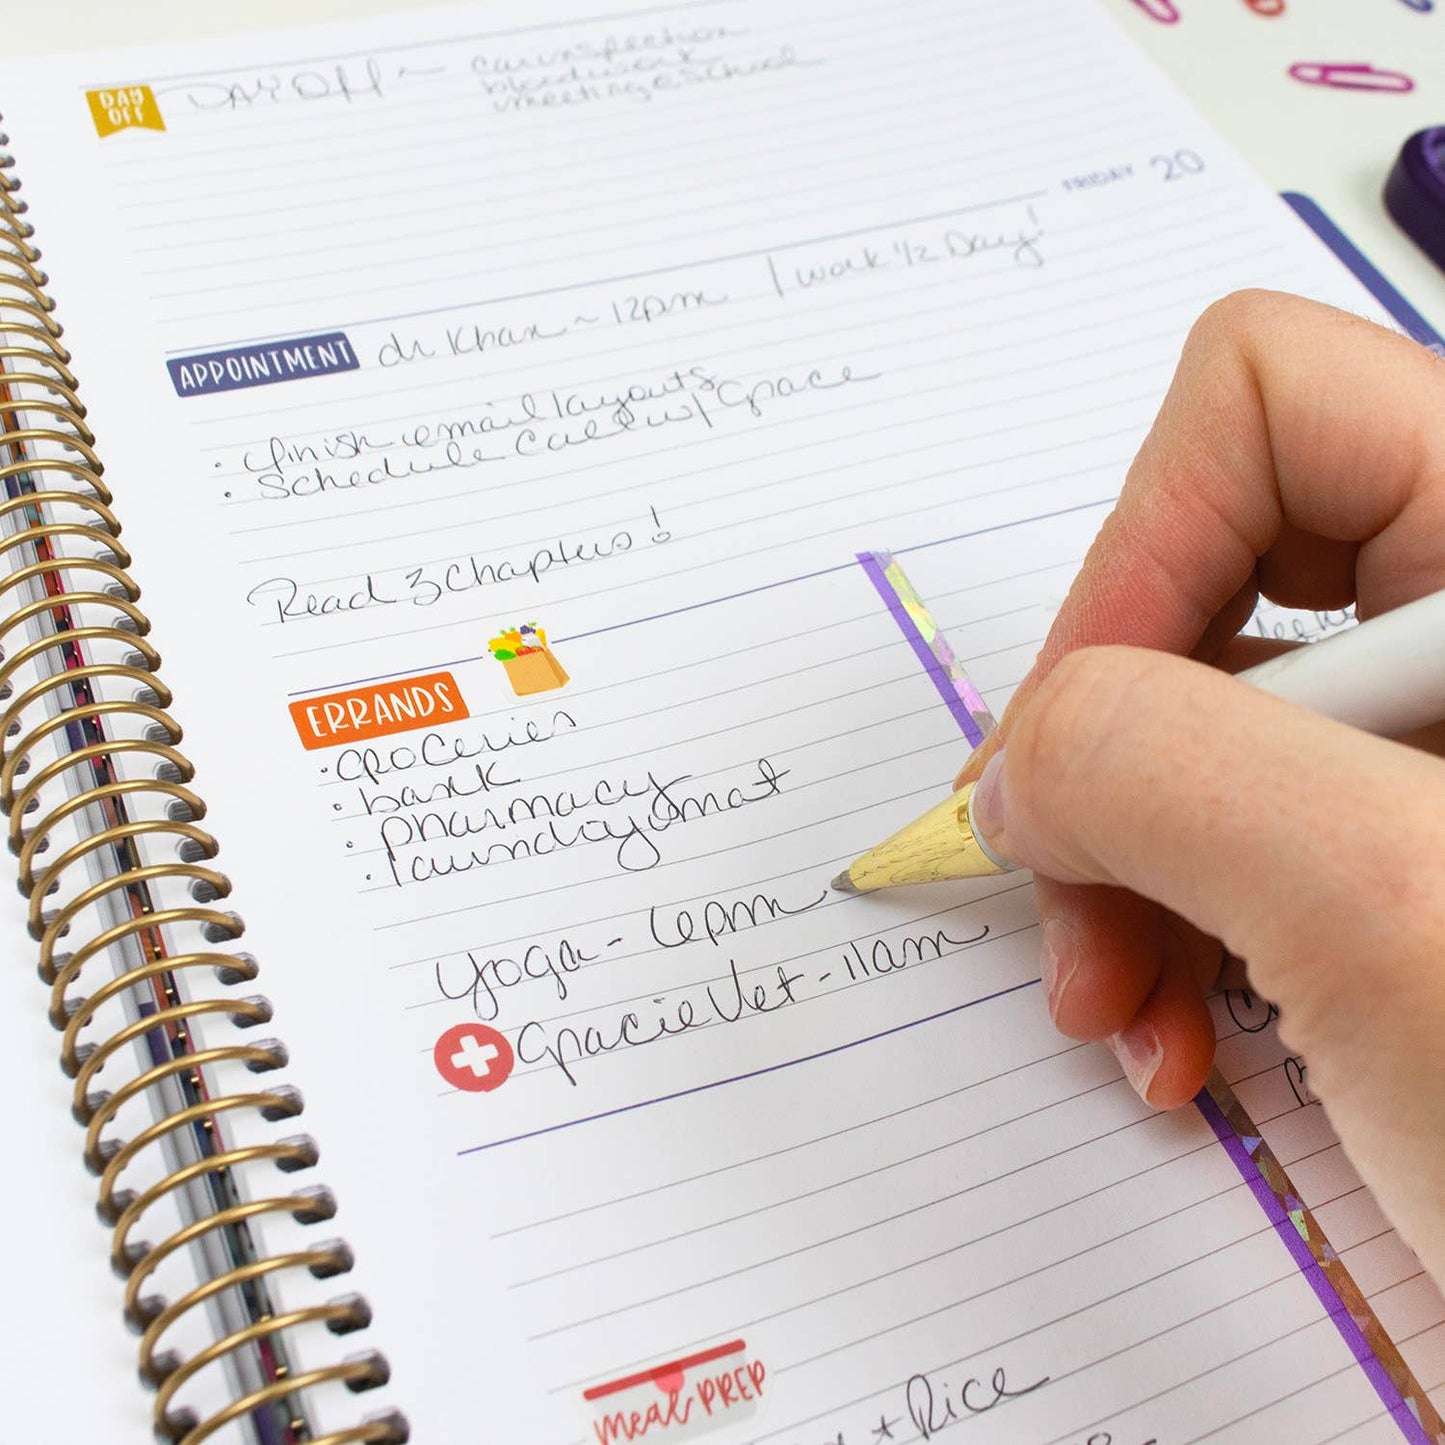 DAY OFF
DAY Off ~ car inspection
bloodwork
meeting @ school
FRIDAY 20
APPOINTMENT dr Khan ~ 12pm / work 1/2 Day!
• finish email layouts
• Schedule Call w/ Grace
Read 3 Chapters!
ERRANDS
• groceries
• bank
• pharmacy
• laundry mat
Yoga - 6pm
Gracie Vet - 11am
meal PREP
+ Rice